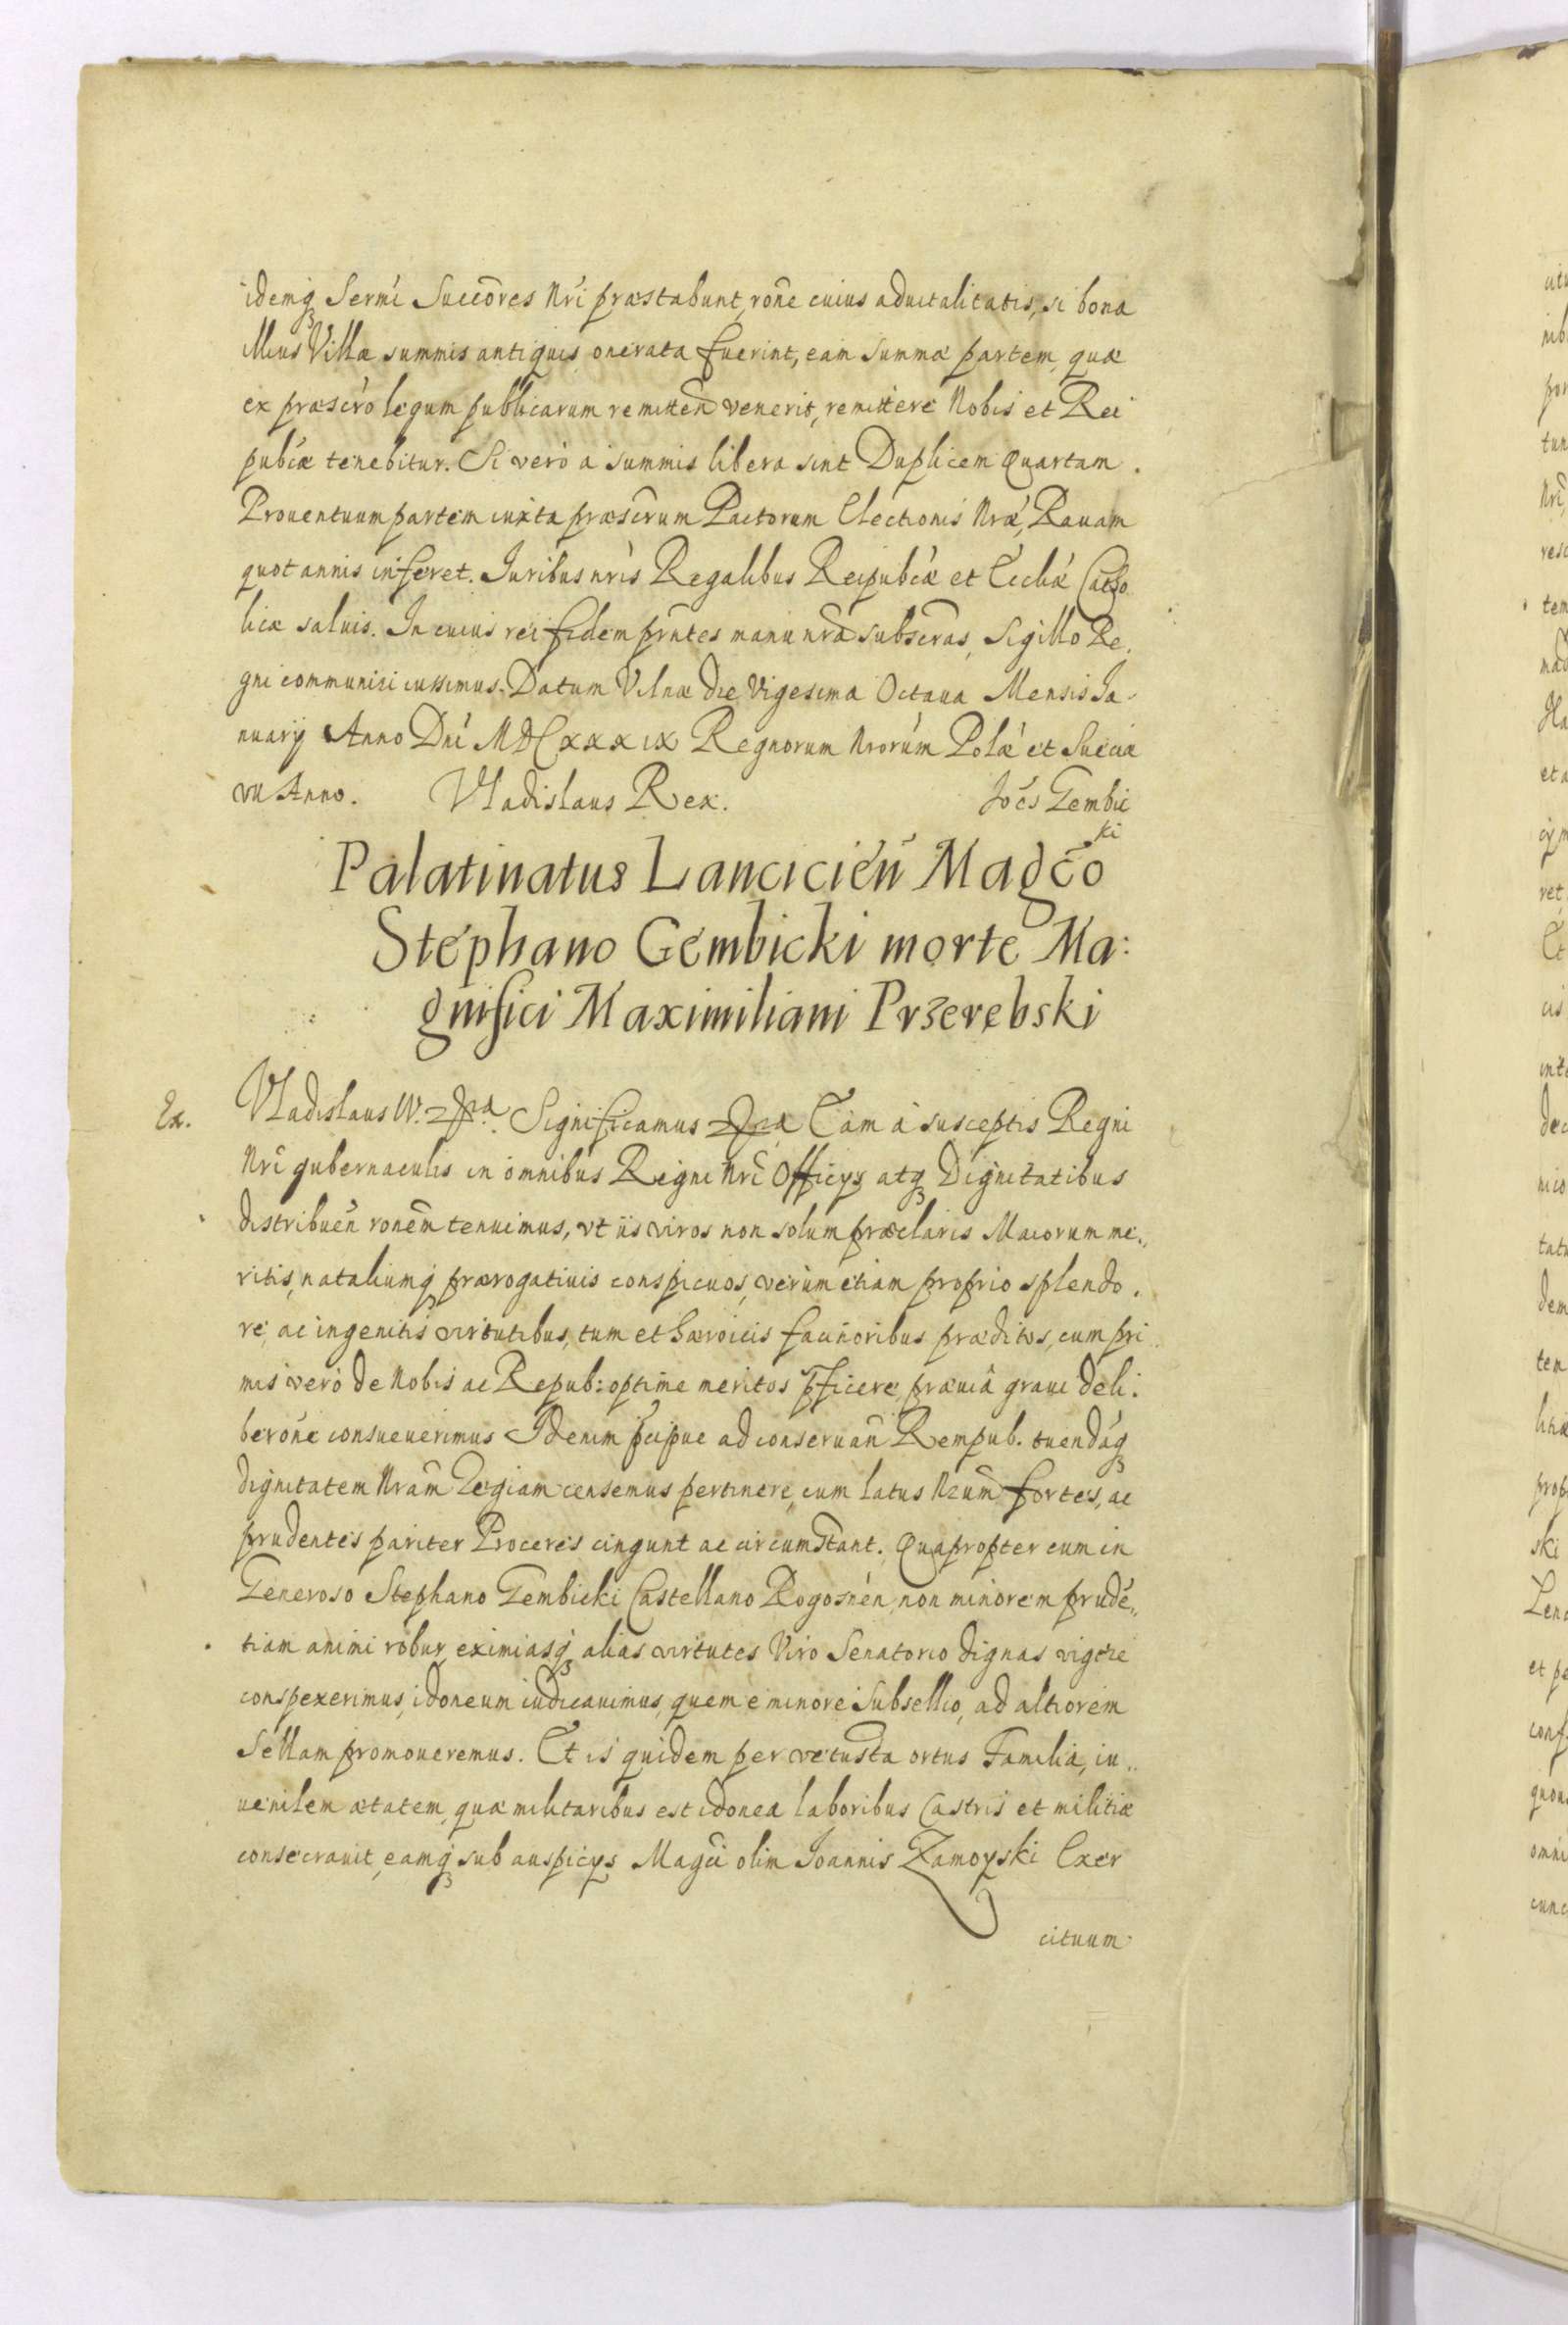 idemq̃ Sermi Succores Nri præstabunt, rõne cuius aduitalitatis, si bona
illius Villæ summis antiquis onerata fuerint, eam summæ partem, quæ
ex præscro legum publicarum remitten venerit, remittere Nobis et Rei
pubcæ tenebitur. Si verò a summis libera sint Duplicem Quartam
Prouentuum partem iuxta præscrum Pactorum Electionis Nræ, Rauam
quot annis inferet. Iuribus nris Regalibus Reipubcæ et Eccliæ Catho
licæ saluis. In cuius rei fidem prntes manu nra subscras, Sigillo Re,
gni communiri iussimus. Datum Vilnæ die Vigesima Octaua Mensis Ia,
nuarij Anno Dni MDCxxxix Regnorum Nrorum Polæ et Sueciæ
VII Anno. Vladislaus Rex. Joes Gembic
ki
Palatinatus Lancicień Magco
Stephano Gembicki morte Ma:
gnifici Maximiliani Przerębski
Ex. Vladislaus IV. Significamus Eam à susceptis Regni
Nri gubernaculis in omnibus Regni Nri Officys atq̃ Dignitatibus
distribuen ronem tenuimus, vt iis viros non solum præclaris Maiorum me,,
ritis, nataliumq̃ prærogatiuis conspicuos, verùm etiam proprio splendo,
re, ac ingenitis virtutibus, tum et hæroicis facinoribus præditos, cum pri
mis verò de Nobis ac Repub: optime meritos pficere, præuiâ graui deli:
berone consueuerimus Id enim pcipue ad conseruan Rempub. tuendaq̃
dignitatem Nram Regiam censemus pertinere, cum latus Nrum fortes, ac
prudentes pariter Proceres cingunt ac circumstant. Quapropter cum in
Generoso Stephano Gembicki Castellano Rogosnen, non minorem prudẽ,,
tiam animi robur, eximiasq̃ alias virtutes Viro Senatorio dignas vigere
conspexerimus, idoneum iudicauimus, quem e minore Subsellio, ad altiorem
Sellam promoueremus. Et is quidem per vetusta ortus Familia, iu,,
uenilem ætatem, quæ militaribus est idonea laboribus Castris et militiæ
consecrauit, eamq̃ sub auspicys Magci olim Joannis Zamoyski Exer
cituum